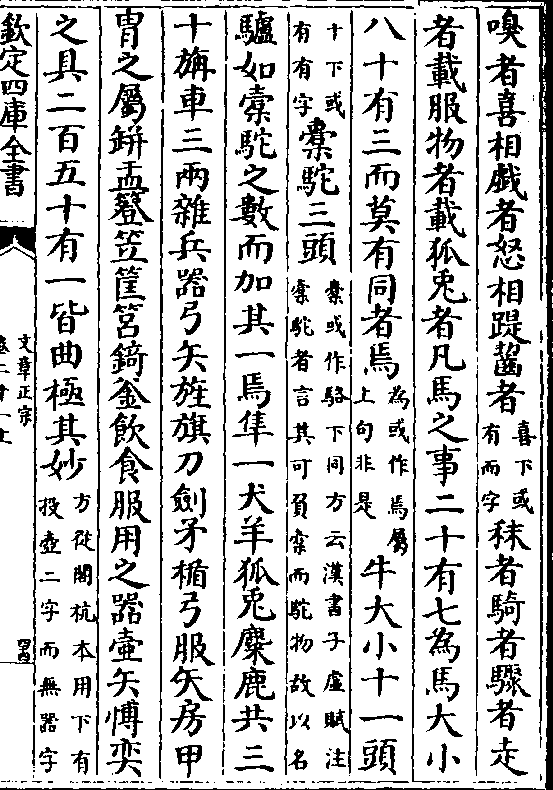 嗅者喜相戲者怒相踶齧者喜下或有而字秣者騎者驟者走
者載服物者載狐兎者凡馬之事二十有七為馬大小
八十有三而莫有同者焉為或作焉屬上句非是牛大小十一頭
十下或有有字橐駝三頭橐或作駱下同方云漢書子虛賦注橐駝者言其可負橐而駝物故以名
驢如橐駝之數而加其一焉隼一犬羊狐兎麋鹿共三
十旃車三兩雜兵器弓矢旌旗刀劍矛楯弓服矢房甲
胄之屬缾盂簦笠筐筥錡釜飲食服用之器壷矢愽奕
之具二百五十有一皆曲極其妙方從閣杭本用下有投壺二字而無器字
欽定四庫全書
文章正宗
卷二十一上